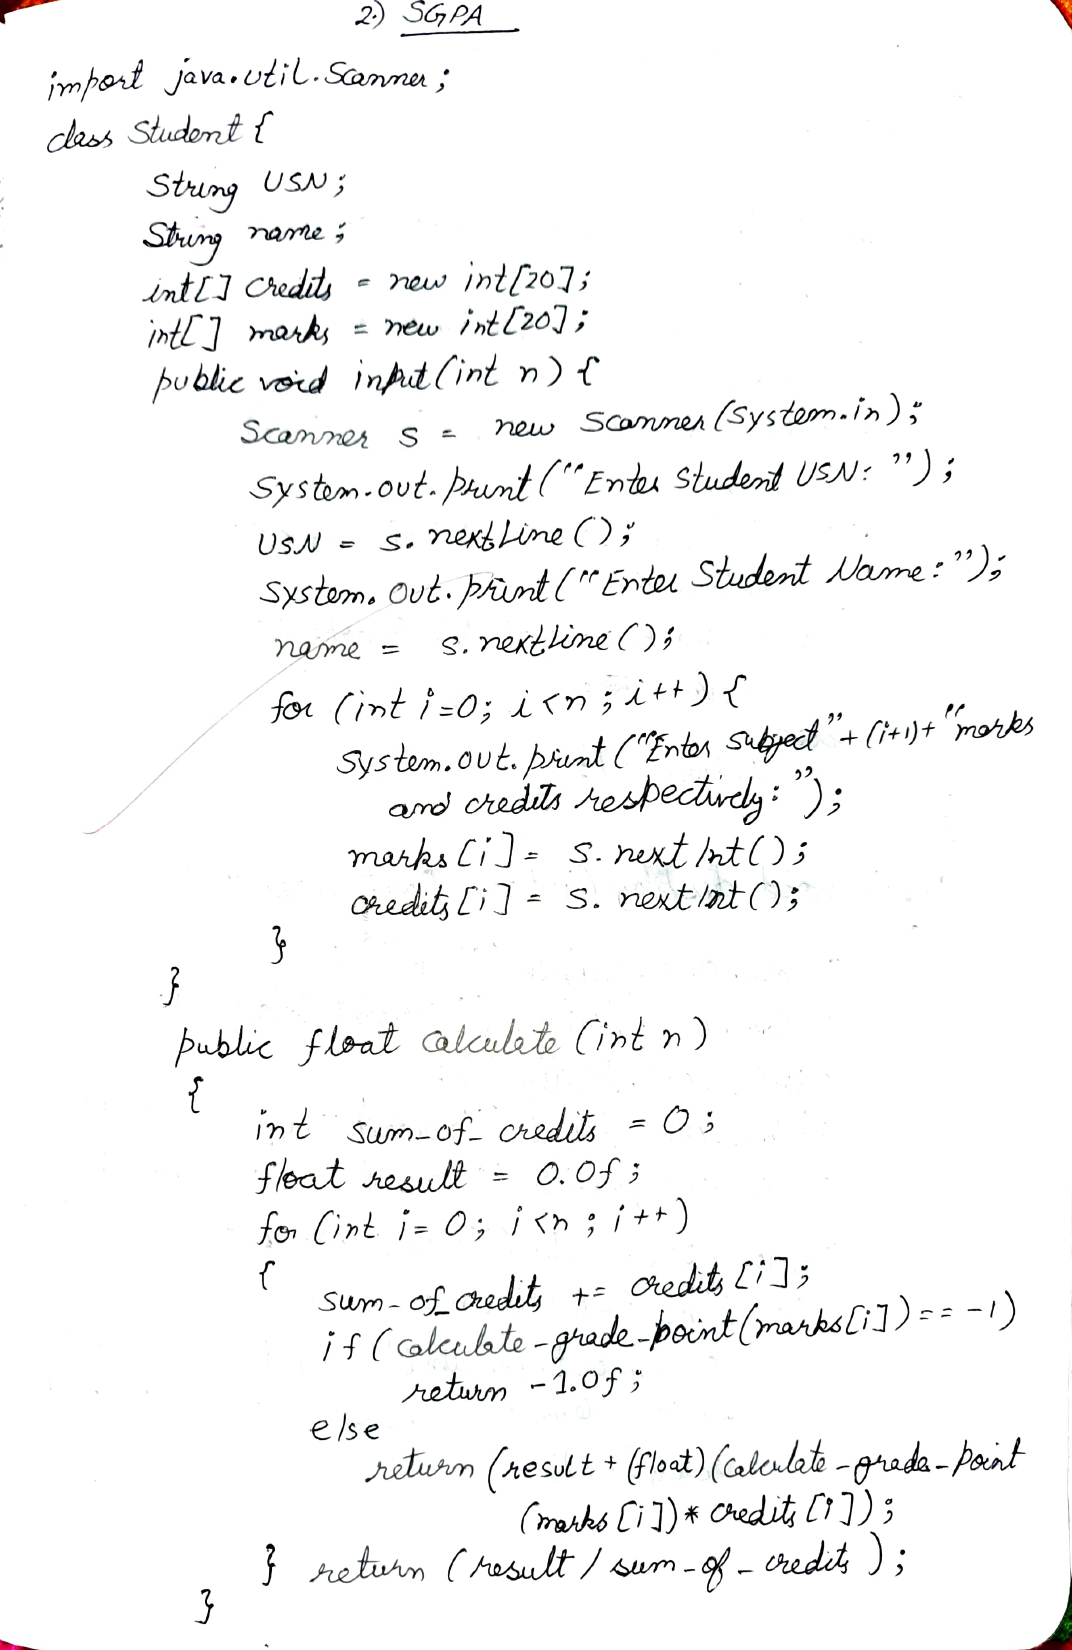 2.) SGPA
import java.util.Scanner;
class Student {
String USN;
String name;
int[] credits = new int[20];
int[] marks = new int[20];
public void input(int n) {
Scanner s = new Scanner(System.in);
System.out.print("Enter Student USN: ");
USN = s.nextLine();
System.out.print("Enter Student Name: ");
name = s.nextLine();
for (int i=0; i<n; i++) {
System.out.print("Enter subject" + (i+1) + "marks
and credits respectively: ");
marks[i] = s.nextInt();
credits[i] = s.nextInt();
}
}
public float calculate (int n)
{
int sum_of_credits = 0;
float result = 0.0f;
for (int i= 0; i<n; i++)
{
sum_of_credits += credits[i];
if (calculate_grade_point(marks[i]) == -1)
return -1.0f;
else
return (result + (float)(calculate_grade_point
(marks[i]) * credits[i]);
} return (result / sum_of_credits);
}